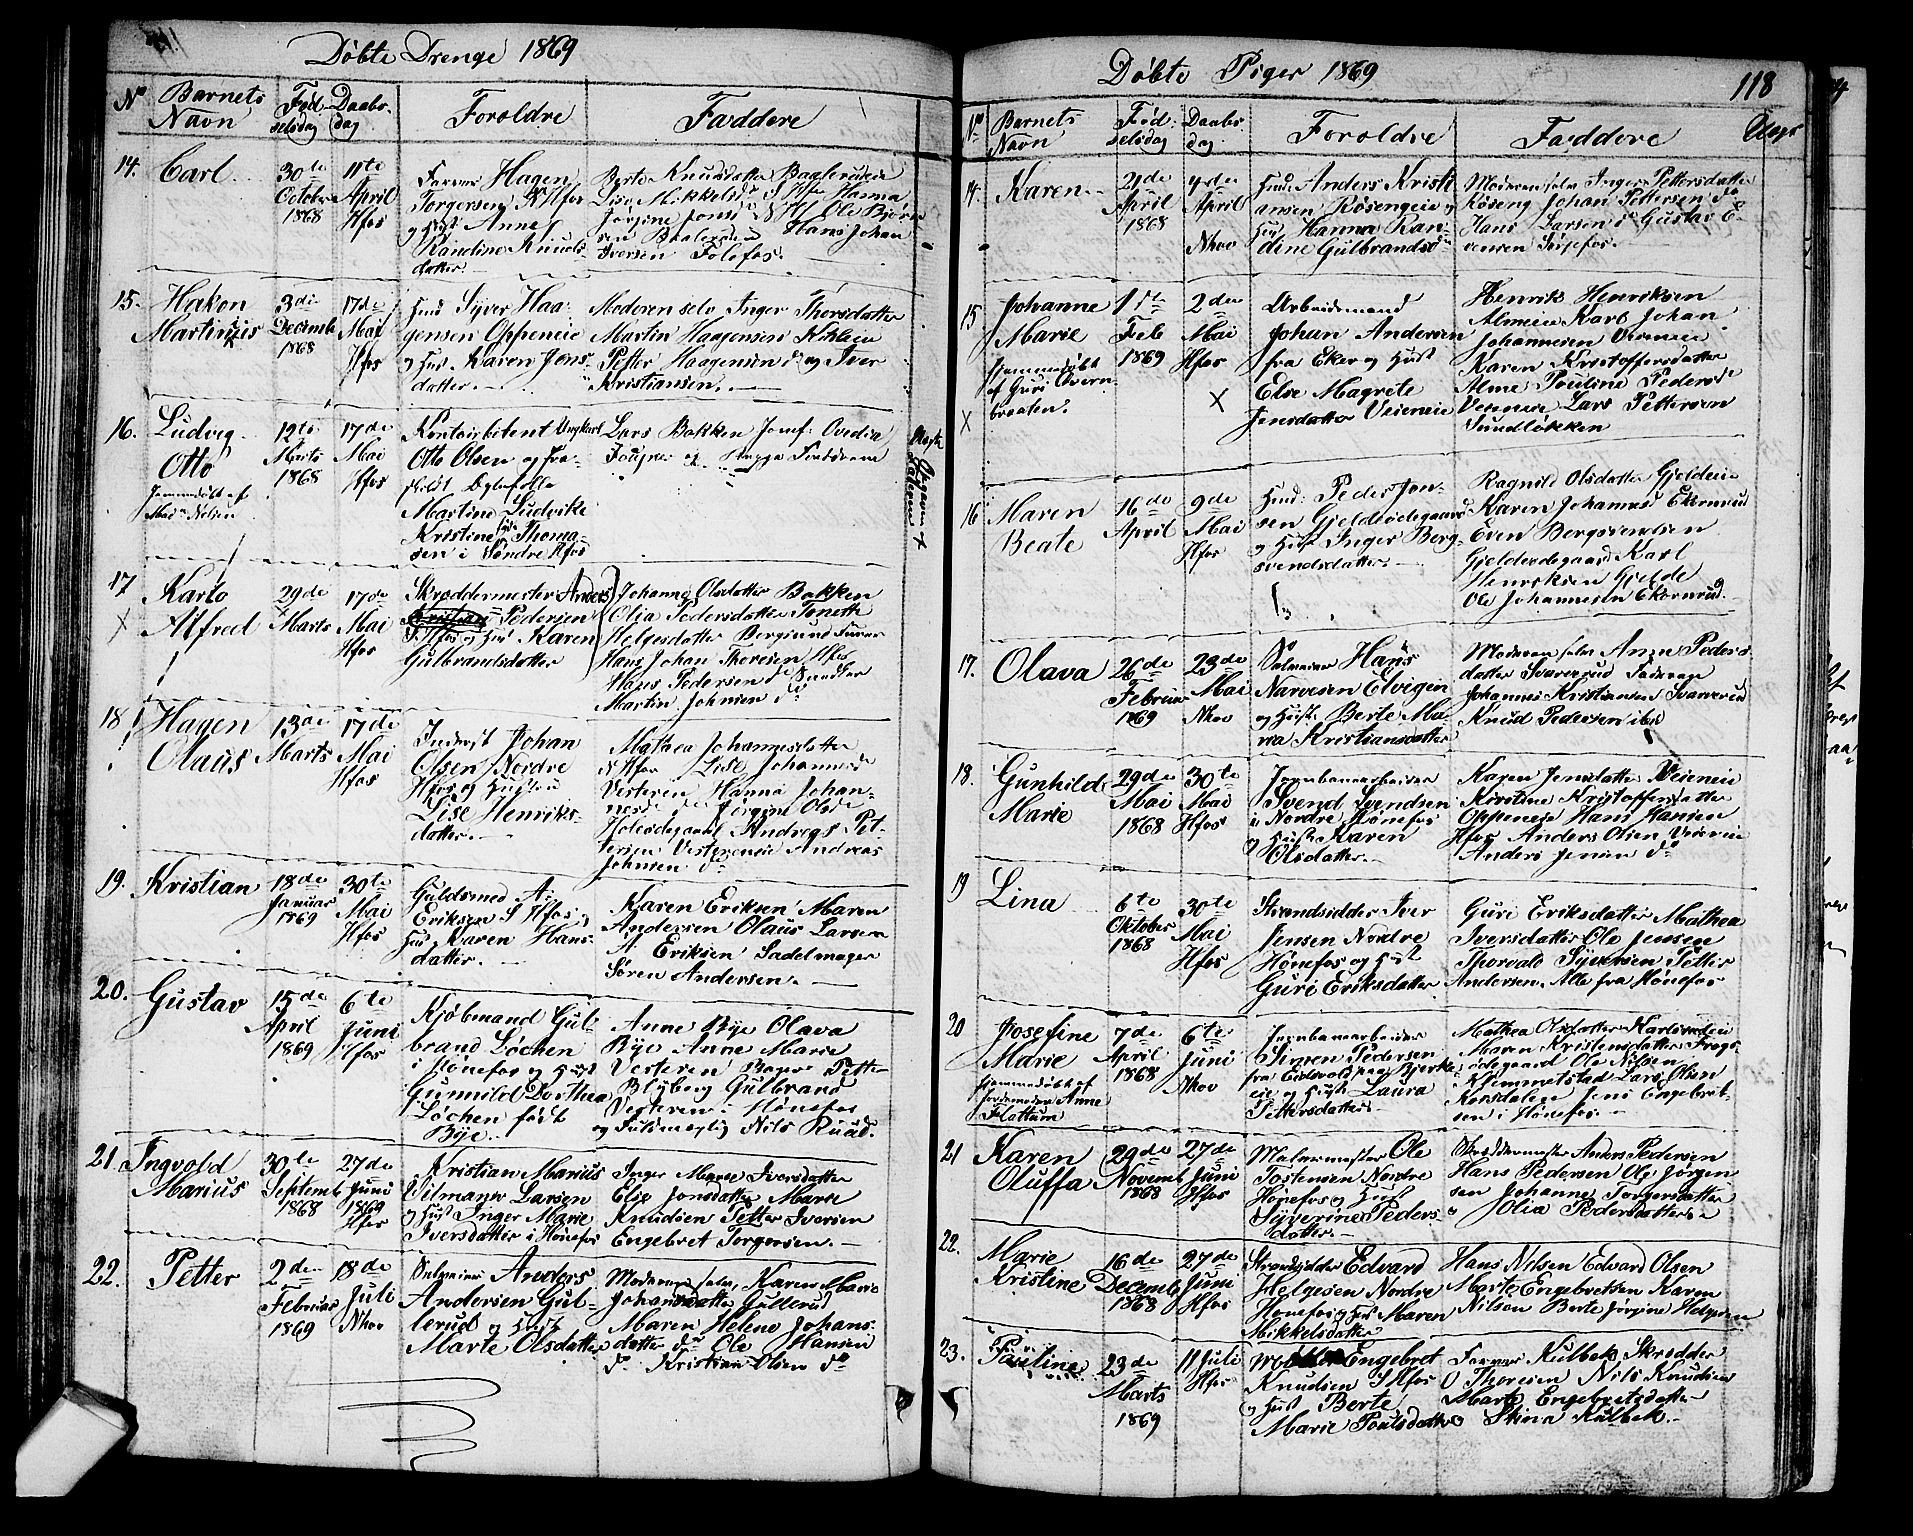 Døbte Drenge 1869
No Barnets Navn Fødselsdag Daabsdag Foroldre Faddere
14. Carl 30de October 1868 11te April Hfos
Farver Hagen
Torgersen N Hfos
og Hust Anne
Randine Knuds-
datter
Berte Knudsdatter
Lise Mikkelsd
Jørgine
Hans Johan
Iversen Folefos.
15. Hakon Martinius 3die Decembr 1868 17de Mai Hfos
Hmd Syver Haa-
gensen Oppeneie
og Hus Karen Jens-
datter.
Moderen selv Inger Thorsdatter
Martin Haagensen Kihleie
Petter Haagensen do og Iver
Kristiansen.
16. Ludvig Otto 12te Marts 1868 17de Mai Hfos
Jemmedøbt af
Mad Nelsen
Kontoirbetent Ungkarl
Otto Olsen og fra-
skildt
Martine Ludvike
Kristine Thoma-
sen i Søndre Hfos
Lars Bakken Jomf. Ovedia
17 Karlo Alfred 29de Marts 17de Mai Hfos
X
Skræddermester Anders
Pedersen
S Hfos og Hus Karen
Gulbrandsdatter
Johanne Olsdatter Bakken
Olia Pedersdatter Tonette
Helgesdatter Berglund Farver
Hans Johan Thoresen Hfos
Hans Pedersen do Snedker
Martin Johnsen do
18 Hagen Olaus 13de Marts 17de Mai Hfos
Inderst Johan
Olsen Nordre
Hfos og Hustru
Lise Henriks-
datter.
Mathea Johannesdatter
N Hfos Lise Johannesd
Vesteren Hanna Johan-
nesd do Jørgine Olsd
Holesdegaard Andreas Pet-
tersen Vesterneie Andreas
Johnsen do
19. Kristian 18de Januar 1869 30te Mai Hfos
Guldsmed A.
Eriksen S Hfos og
Hus Karen Hans-
datter.
Karen Eriksen Maren
Andersen Olaus Larsen
A. Eriksen Sadelmager
Søren Andersen.
20. Gustav 15de April 1869 6te Juni Hfos
Kjøbmand Gul-
brand Løchen
i Hønefos og Hust
Gunnild Dorthea
Løchen født
Bye.
Anne Bye Olava
Bye Anne Marie
Vesteren Bager Pette-
Blyberg Gulbrand
Vesteren i Hønefos
og Fuldmægtig Nils Ruud.
21. Ingvold Marius 30te Septemb 1868 27de Juni 1869 Hfos
Kristian Marius
Vilmann Larsen
og Hust Inger Marie
Iversdatter i Hønefos
Inger Marie Iversdatter
Elie Jonsdatter Marte
Knudsen Petter Iversen
Engebret Torgersen.
22. Petter 2den Februar 1869 18de Juli Nhov
Selveier Anders
Andersen Gul-
lerud og Hust
Marte Olsdatter
Moderen selv, Karen Marie
Johansdatter Gullerud
Maren Helene Johans-
datter do Ole Hansen
do Kristian Olsen do
Døbte Piger 1869
118
No Barnets Navn Fødselsdag Daabsdag Foroldre Faddere
14. Karen 21de April 1868 4de April Nhov
Hmd: Anders Kristi
ansen Røsengeie og
Hust Hanna Ran-
dine Gulbrandsd
Moderen selv Inger Pettersdatter
Røseng Johan Pettersen do
Hans Larsen do Gustav E-
vensen
15 Johanne Marie 1ste Feb 1869 2den Mai Hfos
Hjemmedøbt
af Guri Overn
braaten.
X X
Arbeidsmand
Johan Andersen
fra Eker og Hust
Else Magrete
Jensdatter Veieneie
Henrik Henriksen
Almeie Karl Johan
Johannesen Veieneie
Karen Kristoffersdatter
Alme Pouline Pedersd
Veieneie Lars Pettersen
Sundløkken
16 Maren Beate 16de April 9de Mai Hfos
Hmd: Peder Jon-
sen Gjeldeødegaard
og Hust Inger Berg-
svendsdatter
Ragnild Olsdatter Gjeldeie
Karen Johannesd Ekornrud
Even Bergsvendsen
Gjeldeødegaard Karl
Henriksen Gjelde
Ole Johannesen Ekornrud.
17. Olava 26de Februar 1869 23de Mai Nhov
Selveier Hans
Narvesen Elvigen
og Hust. Berte Ma-
ria Kristiansdatter
Moderen selv Anne Peders
datter Svarverud Faderen
Johannes Kristiansen Svarverud
Knud Pedersen ibd
18. Gunhild Marie 29de Mai 1868 30te Mai Hfos
Jernbanearbeider
Svend Svendsen
i Nordre Hønefos
og Hust Karen
Olsdatter.
Karen Jensdatter Veieneie
Kirstine Kristoffersdatter
Oppeneie Hans Hansen
Hfos Anders Olsen Veieneie
Anders Jensen do
19 Lina 6te Oktober 1868 30te Mai Hfos
Strandsidder Iver
Jensen Nordre
Hønefos og Hust
Guri Eriksdatter
Guri Eriksdatter Mathea
Iversdatter Ole Jensen
Thorvald Syversen Petter
Andersen. Alle fra Hønefos
20 Josefine Marie 7de April 1868 6te Juni Nhov
Hjemmedøbt af
Jordemoder Anne
Flattum
Jernbanearbeider
Simen Pedersen
fra Eidsvold paa Bjerke-
eie og Hust Laura
Pettersdatter.
Mathea Olsdatter
Maren Kristensdatter Frogs-
ødegaard Ole Nilsen
Hjemmetstad Lars Olsen
Korsdalen Jens Engebret-
sen i Hønefos.
21 Karen Oluffa 29de Novemb 1868 27de Juni Hfos
Malermester Ole
Tostensen Nordre
Hønefos og Hust
Syverine Peders-
datter.
Skræddermester Anders Pedersen
Hans Pedersen Ole Jørgen
sen Johanne Torgersdatter
Jolia Pedersdatter
22. Marie Kristine 16de Decemb 1868 27de Juni Hfos
Strandsidder Edvard
Helgesen Nordre
Hønefos og Hus Maren
Mikkelsdatter
Hans Nilsen Edvard Olsen
Marte Engebretsen Karen
Nilsen Berte Jørgine Helgesen
23. Pauline 23de Marts 1869 11 Juli Hfos
Engebret
Knudsen S Hfos
og Hust Berte
Marie Poulsdatter
Farver Kulbek Skrædder
O Thoresen Nils Knudsen
Marte Engebretsdatter
Stina Kulbek.